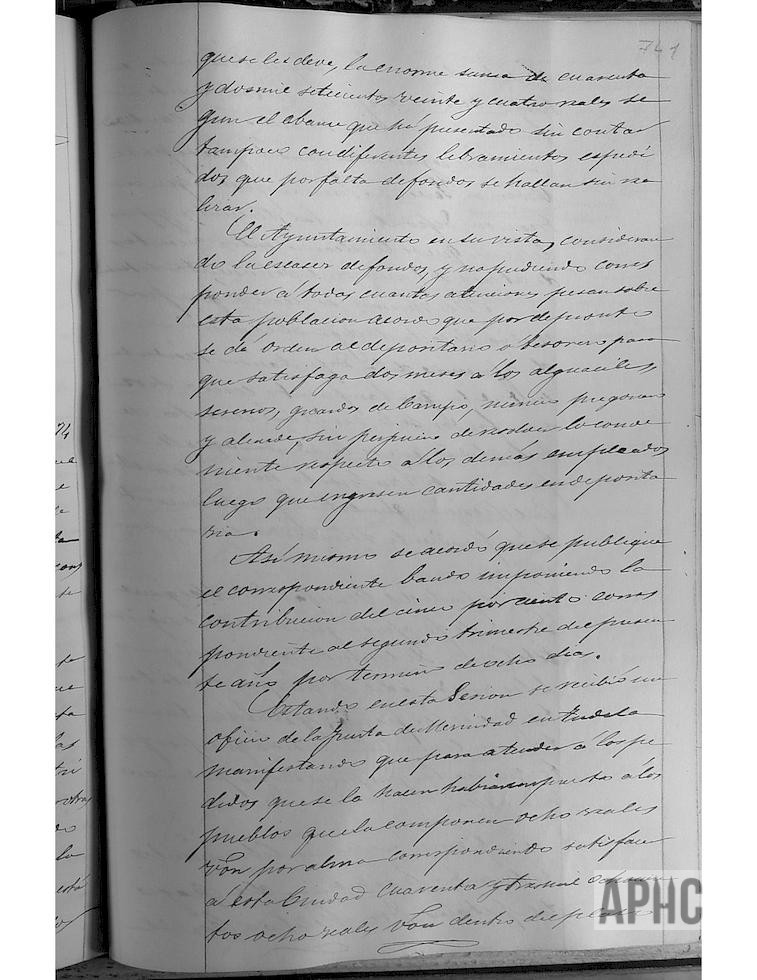 741
que se les deve, la enorme suma de cuarenta
y dos mil setecientos veinte y cuatro reales se
gun el abance que há presentado sin contar
tampoco con diferentes libramientos espedi
dos que por falta de fondos se hallan sin
brar.
El Ayuntamiento en su vista, consideran
do la escasez de fondos, y no pudiendo corres
ponder á todas cuantas atenciones pesan sobre
esta poblacion acordó que por de pronto
se dé orden al depositario ó tesorero para
que satisfaga dos meses á los alguaciles,
serenos, guardas de Campo, pregonero
y alcaide, sin perjuicio de resolver lo conve
niente respecto á los demás empleados
luego que ingresen cantidades en deposita
ria.
Asi mismo se acordó que se publique
el correspondiente bando imponiendo la
contribucion del cinco por ciento corres
pondiente al segundo trimestre del presen
te año por termino de ocho dias.
Estando en esta Sesion se recibió un
oficio de la Junta de Merindad en Tudela
manifestando que para atender á los pe
didos que se la hacen habia impuesto á los
pueblos que la componen ocho reales
Von por alma correspondiendo satisfacer
á esta Ciudad cuarenta y tres mil
tos ocho reales Von dentro del plazo
74
APHC